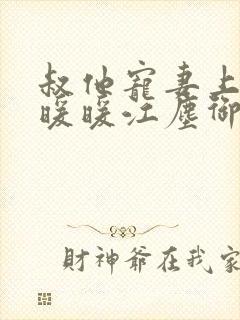 叔他寵妻上
暖暖江塵御
財神爺在我家